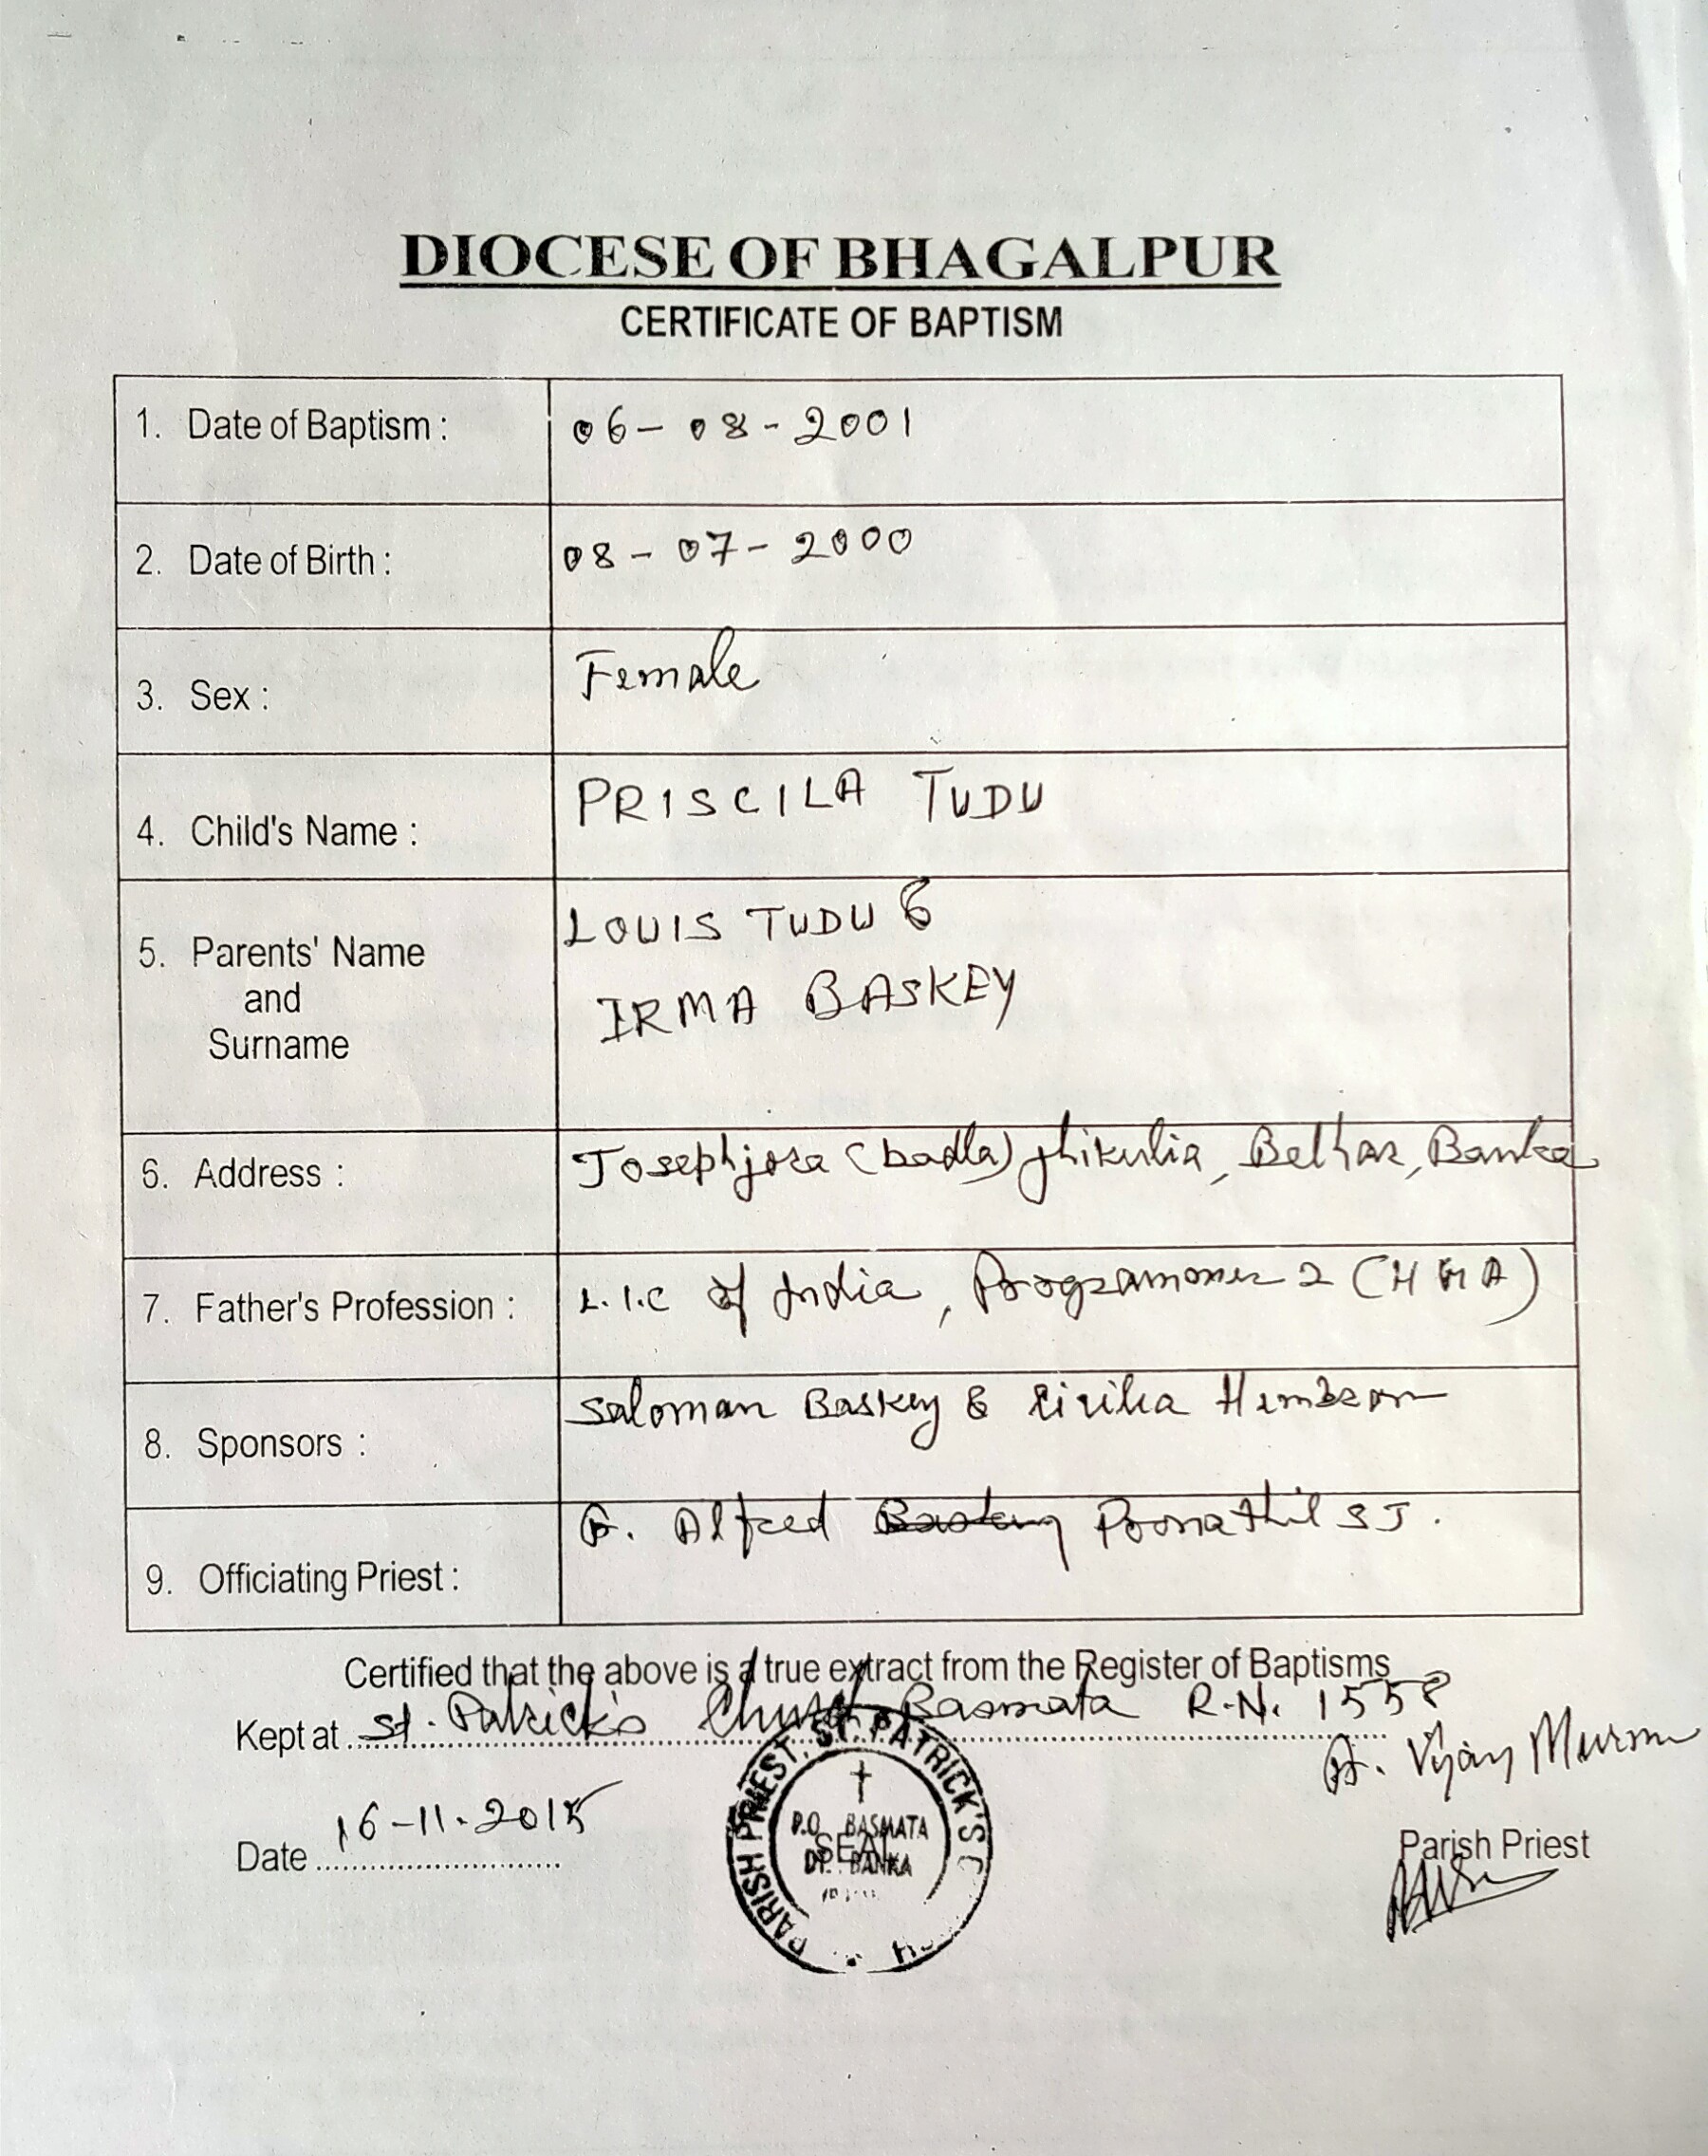 DIOCESE OF BHAGALPUR
CERTIFICATE OF BAPTISM
1. Date of Baptism : 06-08-2001
2. Date of Birth : 08-07-2000
3. Sex : Female
4. Child's Name : PRISCILA TUDU
5. Parents' Name and Surname
LOUIS TUDU &
IRMA BASKEY
6. Address : Josephjora (badla) Jhikulia, Belhar, Banka
7. Father's Profession : L.I.C of India, Programmer 2 (HGA)
8. Sponsors : Saloman Baskey & Hembrom
9. Officiating Priest : Fr. Alfred Poonathil SJ.
Certified that the above is a true extract from the Register of Baptisms
Kept at St. Patrick's Church, Basmata R.N. 1558
Fr. Vijay Murmu
Date 16-11-2015
Parish Priest
PARISH PRIEST, ST. PATRICK'S
P.O. BASMATA
SEAL
DT. BANKA